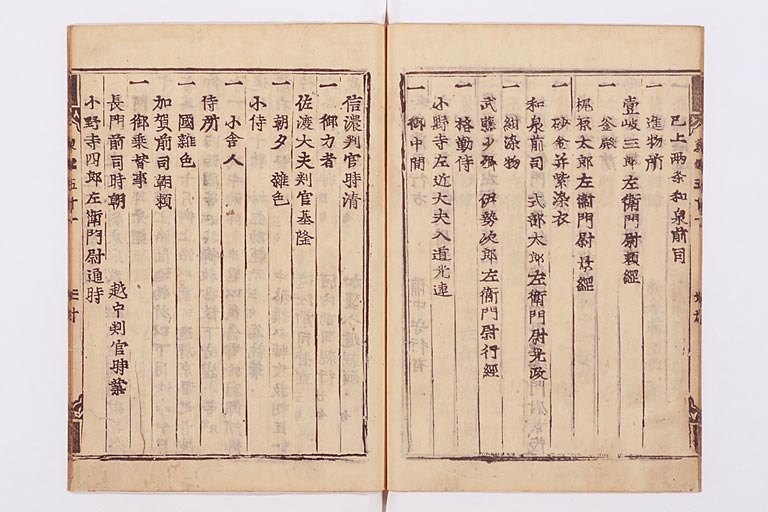 已上両条和泉前司
一 進物所
壹岐三郎左衛門尉頼經
一 釜殿
梶原太郎左衛門尉景經
一 砂金并紫染衣
和泉前司 式部太郎左衛門尉光政
一 紺染物
武藤少卿 伊勢次郎左衛門尉行經
一 格勤侍
小野寺左近大夫入道光連
一 御中間
信濃判官時清
一 御力者
佐渡大夫判官基隆
一 朝夕雜色
小侍
一 小舎人
侍所
一 國雜色
加賀前司朝頼
一 御乗替事
長門前司時朝 越中判官時業
小野寺四郎左衛門尉通時